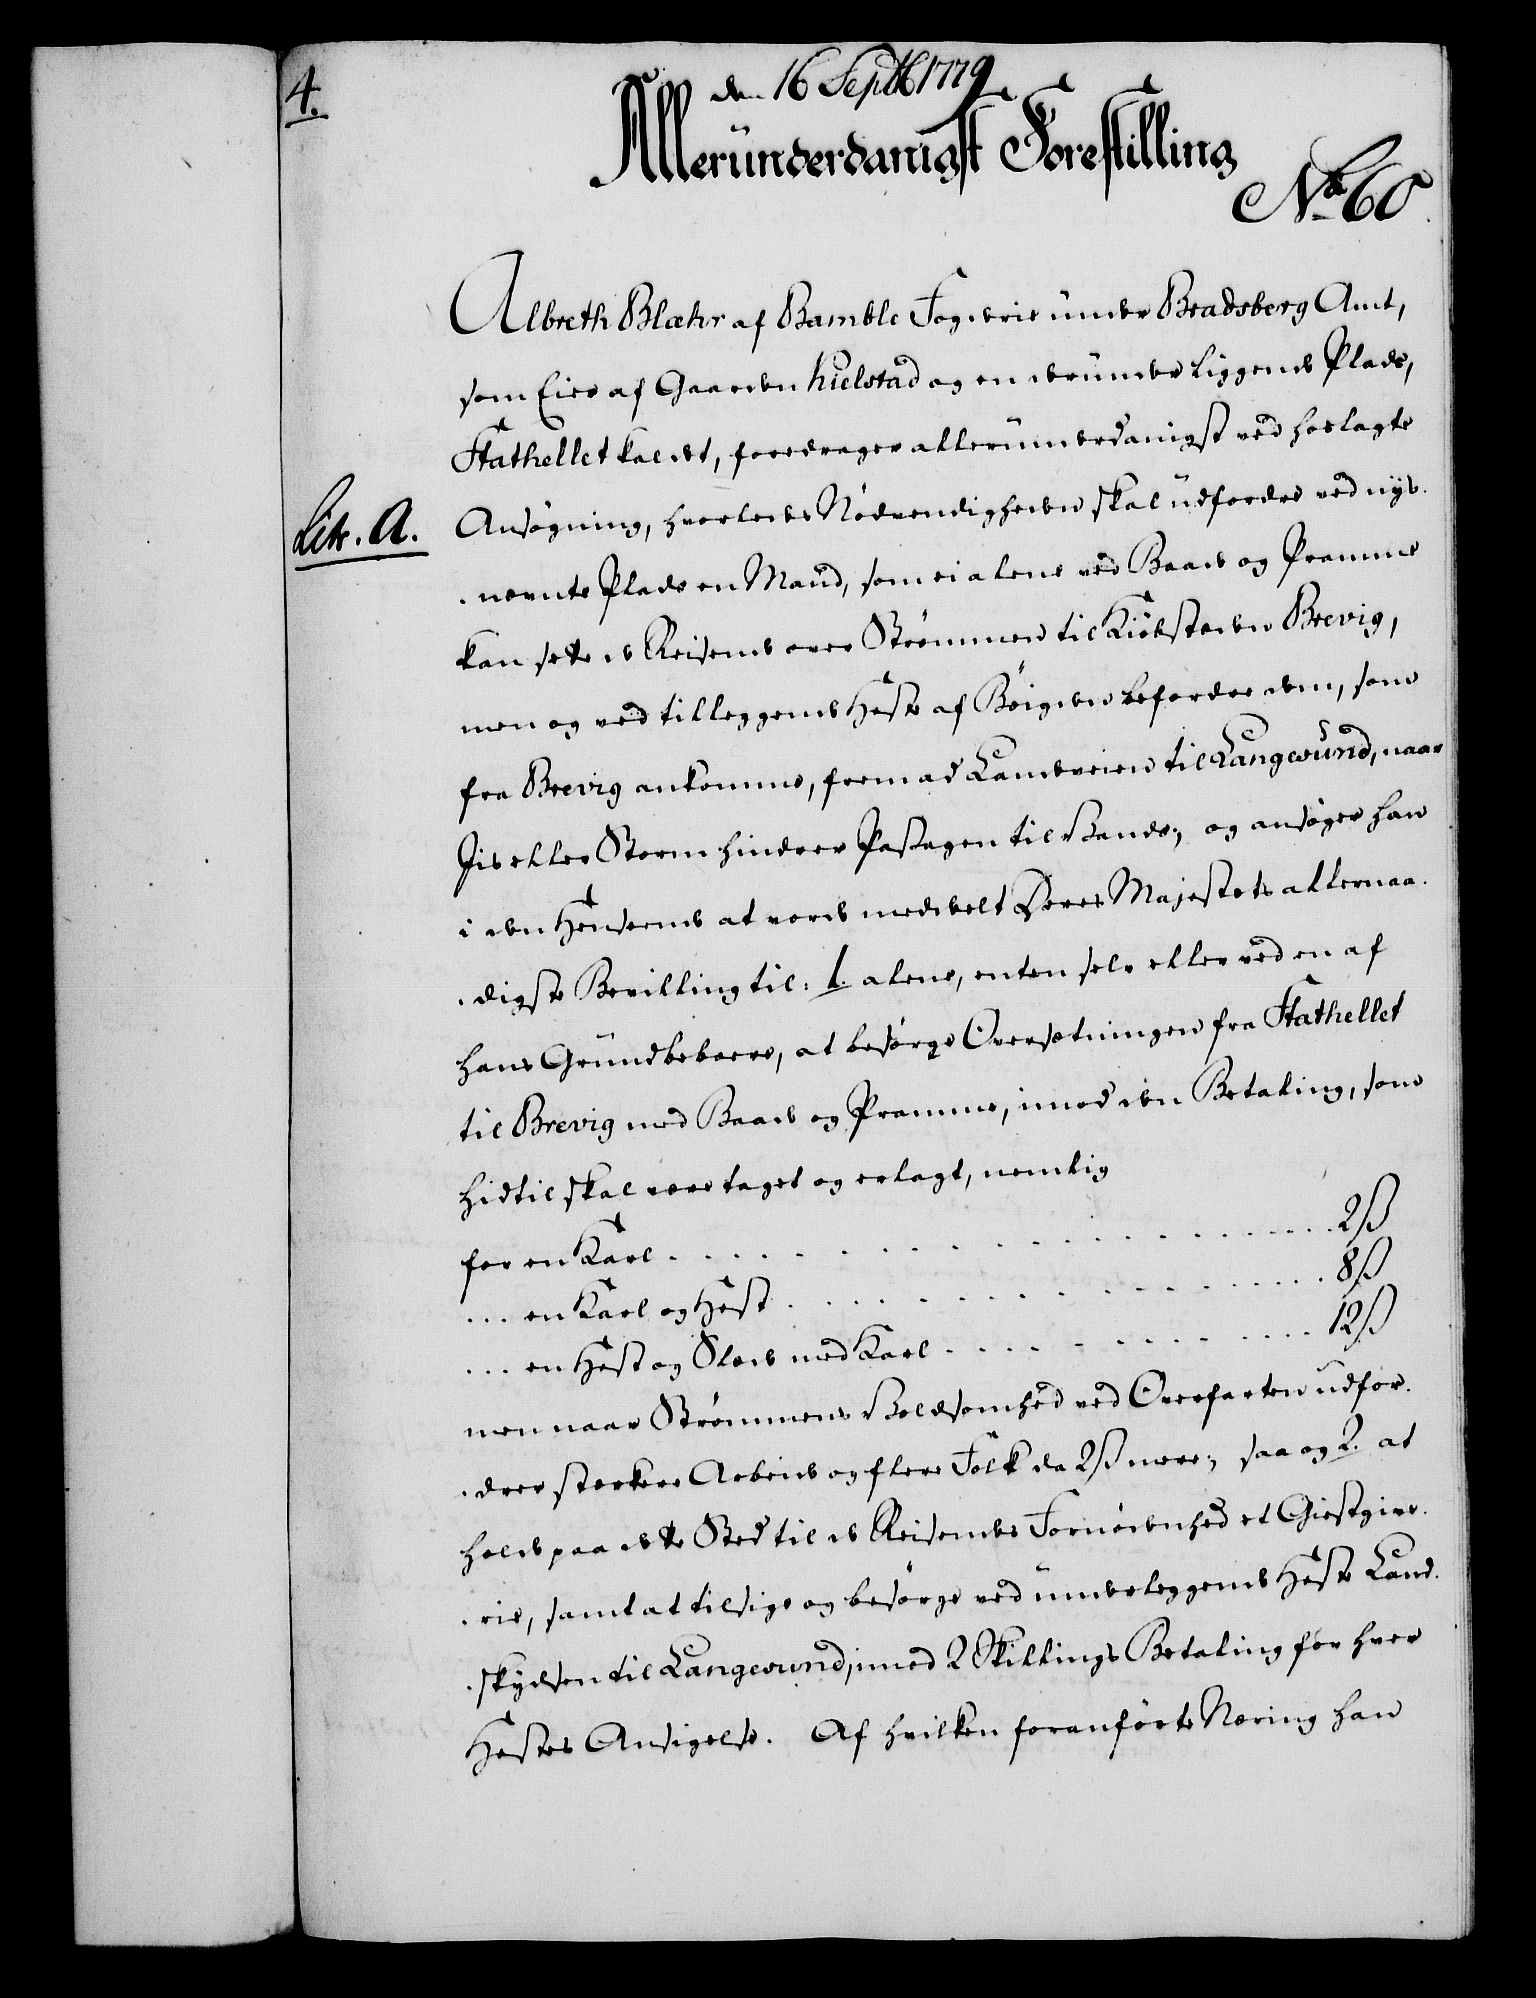 4.
den 16 Septb 1779
Alleründerdanigst Forestilling
No 60
Albreth Blæhr af Bamble Fogderie ünder Bradsberg Amt,
som Eier af Gaarden Kielstad og en deründer liggende Plads,
Stathellet kaldet, foredrager alleründerdanigst ved hoslagte
Litr. A.
Ansøgning, hvorledes Nødvendigheden skal üdfordre ved nys-
-nevnte Plads en Mand, som ei alene ved Baad og Pramme
kan sette de Reisende over Strømmen til Kiøbstæden Brevig,
men og ved tilleggende Heste af Bøigden befordre dem, som
fra Brevig ankomme, frem ad Landveien til Langesünd, naar
Jis eller Storm hindrer Passagen til Vands; og ansøger han
i den Henseende at vorde meddeelt Deres Majestets allernaa-
-digste Bevilling til: 1. alene, enten selv eller ved en af
hans Gründbeboere, at besørge Oversætningen fra Stathellet
til Brevig med Baad og Pramme, imod den Betaling, som
hidtil skal være taget og erlagt, nemlig
for en Karl . . . . . . . . . . . . . . . . . . 2ß
... en Karl og Hest . . . . . . . . . . . . . . 8ß
... en Hest og Slæde med Karl . . . . . . . . . . 12ß
men naar Strømmens Voldsomhed ved Overfarten üdfor-
-drer sterkere Arbeide og flere Folk da 2ß mere; saa og 2. at
holde paa dette Sted til de Reisendes Fornødenhed et Giestgive-
-rie, samt at tilsige og besørge ved ünderleggende Heste Land-
-skydsen til Langesund, imod 2 Skillings Betaling for hver
Hestes Ansigelse. Af hvilken foranførte Næring han